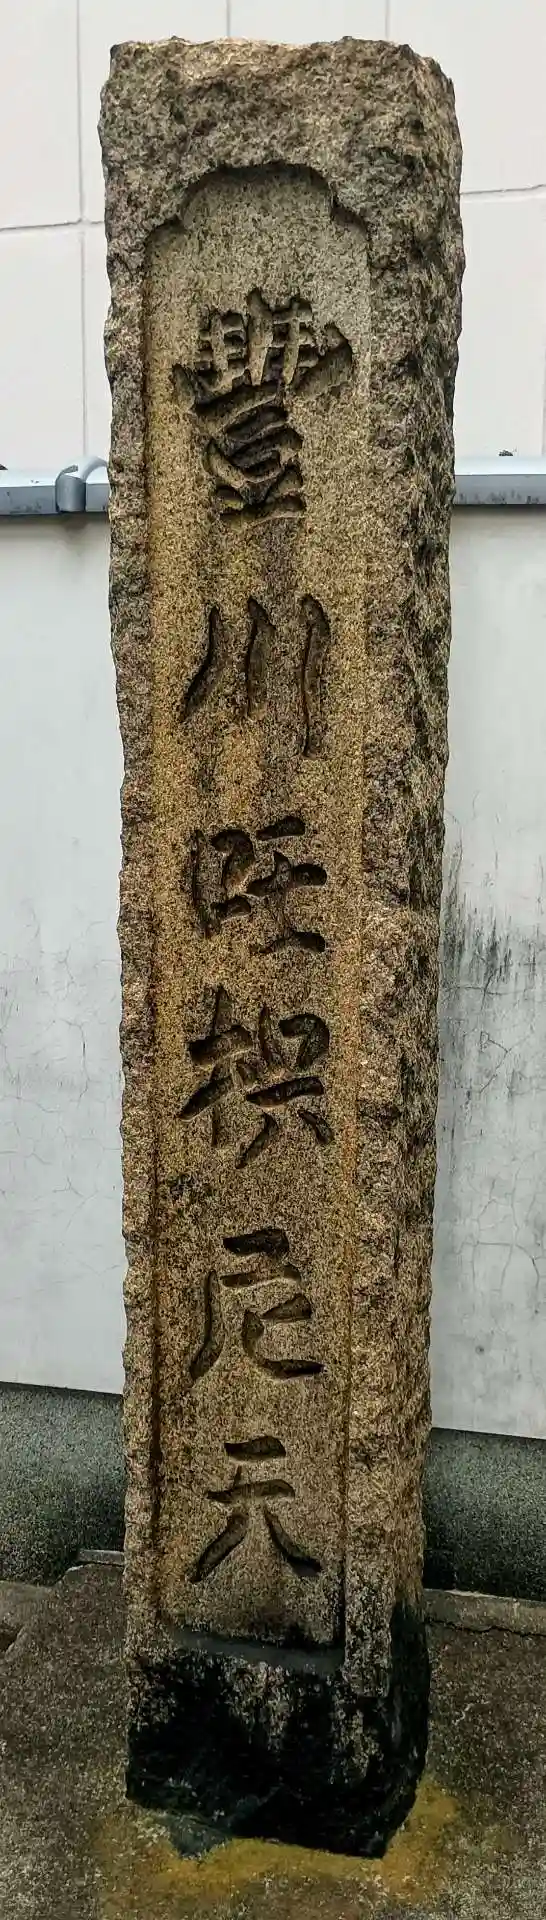 豐川吒枳尼天